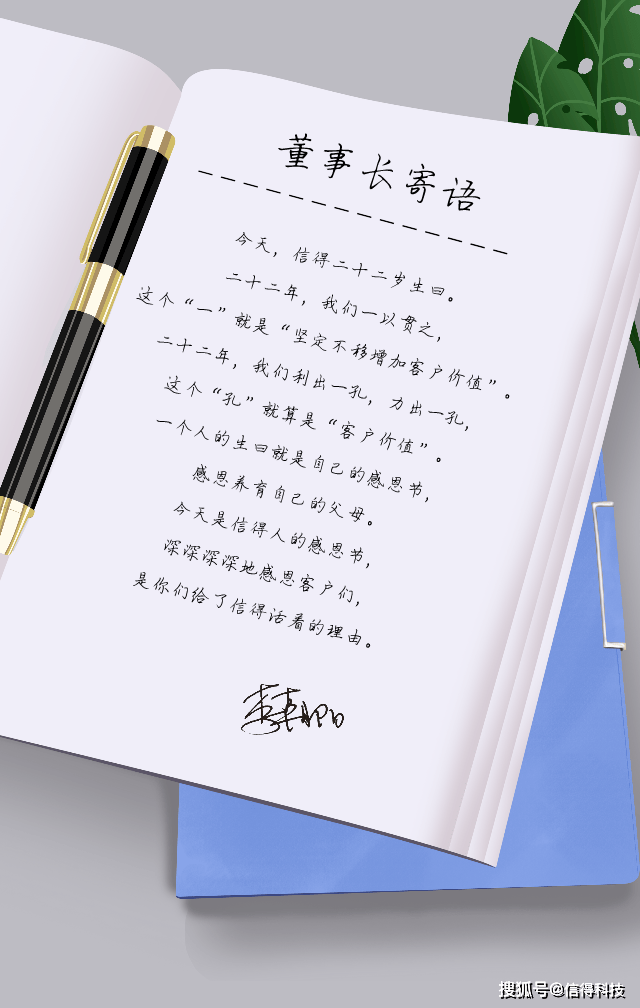 董事长寄语
今天，信得二十二岁生日。
二十二年，我们一以贯之，
这个“一”就是“坚定不移增加客户价值”。
二十二年，我们利出一孔，力出一孔，
这个“孔”就算是“客户价值”。
一个人的生日就是自己的感恩节，
感恩养育自己的父母。
今天是信得人的感恩节，
深深深深地感恩客户们，
是你们给了信得活着的理由。
搜狐号@信得科技